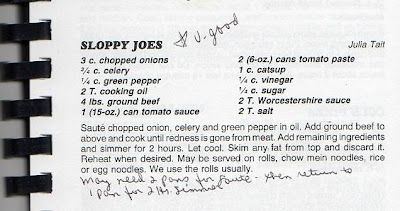 ☆ V. good
SLOPPY JOES Julia Tait
3 c. chopped onions 2 (6-oz.) cans tomato paste
¾ c. celery 1 c. catsup
¼ c. green pepper ¼ c. vinegar
2 T. cooking oil ¼ c. sugar
4 lbs. ground beef 2 T. Worcestershire sauce
1 (15-oz.) can tomato sauce 2 T. salt
Sauté chopped onion, celery and green pepper in oil. Add ground beef to
above and cook until redness is gone from meat. Add remaining ingredients
and simmer for 2 hours. Let cool. Skim any fat from top and discard it.
Reheat when desired. May be served on rolls, chow mein noodles, rice
or egg noodles. We use the rolls usually.
May need 2 pans for Saute - then return to
1 pan for 2 Hr. simmer